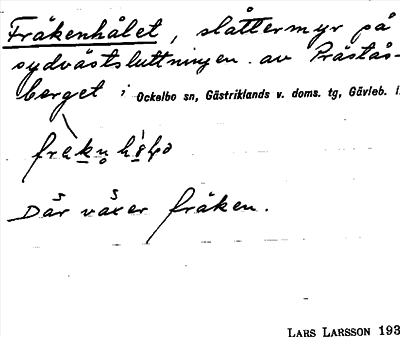 Fräkenhålet, slåttermyr på
sydvästsluttningen av Prästås-
berget; Ockelbo sn, Gästriklands v. doms. tg, Gävleb. l.
Där växer fräken.
LARS LARSSON 193